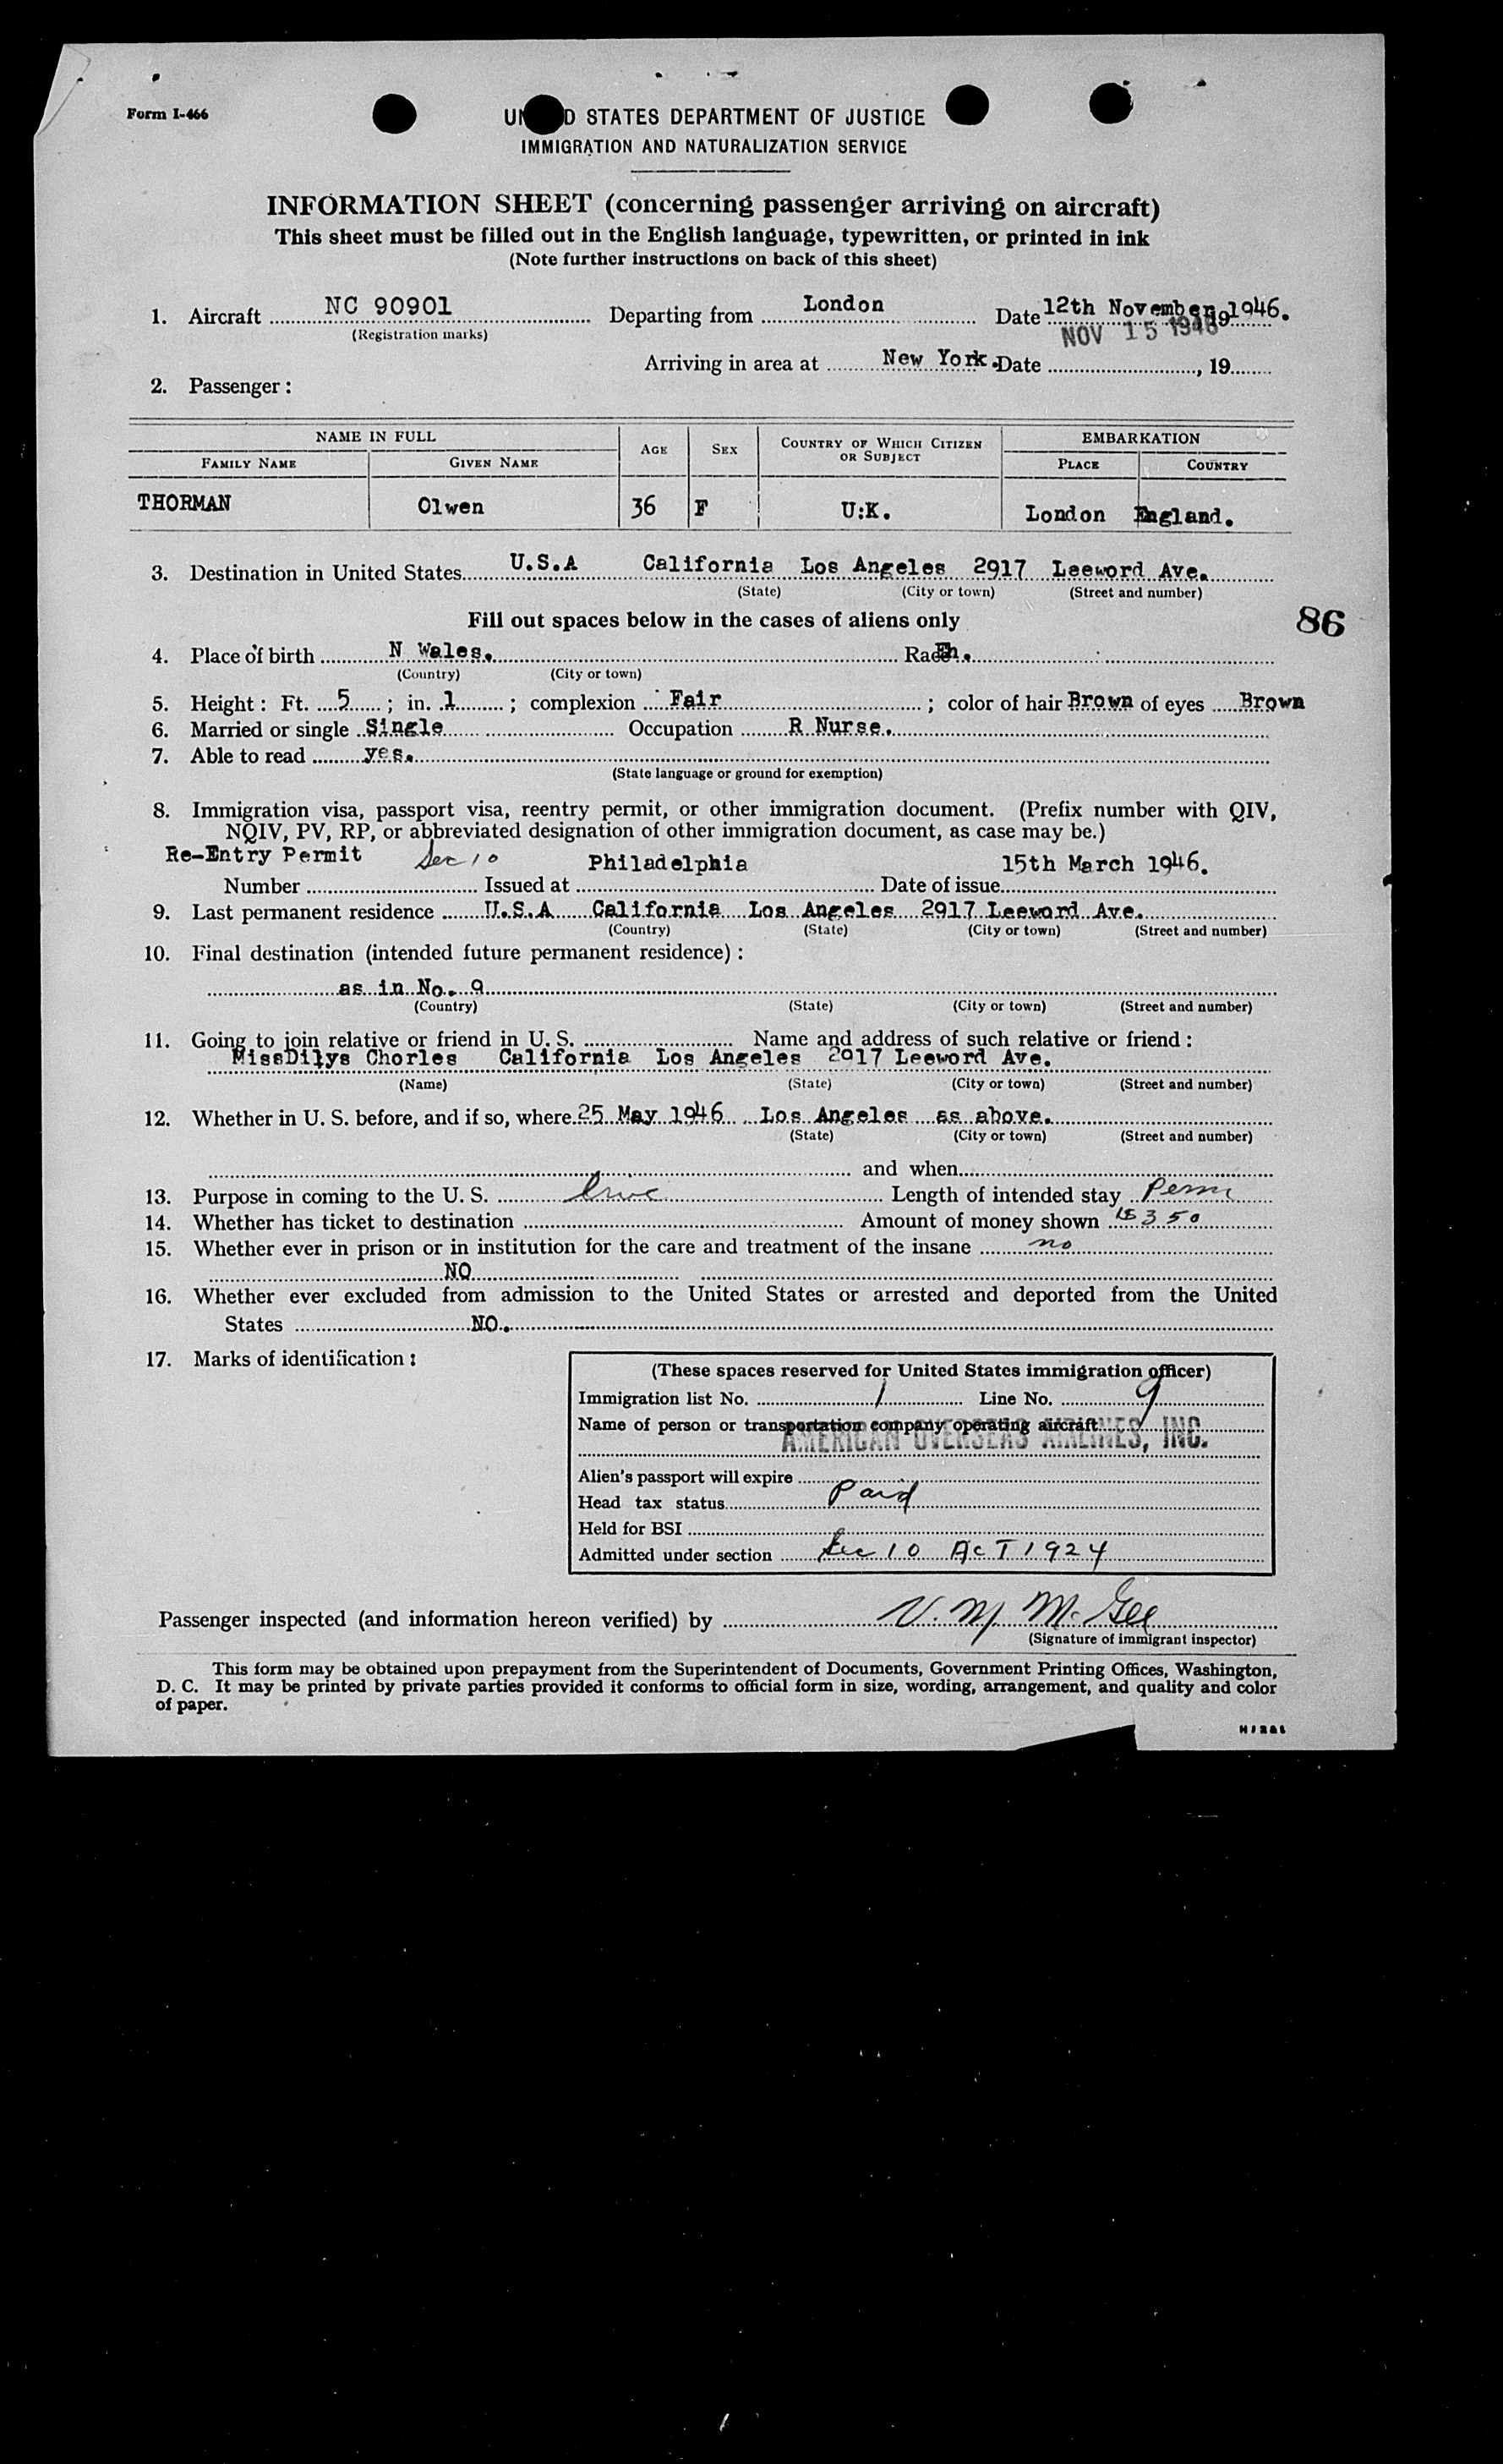 Form I-466
UNITED STATES DEPARTMENT OF JUSTICE
IMMIGRATION AND NATURALIZATION SERVICE
INFORMATION SHEET (concerning passenger arriving on aircraft)
This sheet must be filled out in the English language, typewritten, or printed in ink
(Note further instructions on back of this sheet)
1. Aircraft NC 90901 Departing from London Date 12th November, 19 1946.
(Registration marks)
NOV 15 1946
Arriving in area at New York. Date , 19
2. Passenger:
NAME IN FULL AGE SEX COUNTRY OF WHICH CITIZEN OR SUBJECT EMBARKATION
FAMILY NAME GIVEN NAME PLACE COUNTRY
THORMAN Olwen 36 F U:K. London England.
3. Destination in United States U.S.A California Los Angeles 2917 Leeword Ave.
(State) (City or town) (Street and number)
Fill out spaces below in the cases of aliens only
86
4. Place of birth N Wales. Race
(Country) (City or town)
5. Height: Ft. 5; in. 1; complexion Fair; color of hair Brown of eyes Brown
6. Married or single Single Occupation R Nurse.
7. Able to read yes.
(State language or ground for exemption)
8. Immigration visa, passport visa, reentry permit, or other immigration document. (Prefix number with QIV,
NQIV, PV, RP, or abbreviated designation of other immigration document, as case may be.)
Re-Entry Permit Sec 10 Philadelphia 15th March 1946.
Number Issued at Date of issue
9. Last permanent residence U.S.A California Los Angeles 2917 Leeword Ave.
(Country) (State) (City or town) (Street and number)
10. Final destination (intended future permanent residence):
as in No. 9
(Country) (State) (City or town) (Street and number)
11. Going to join relative or friend in U. S. Name and address of such relative or friend:
MissDilys Chorles California Los Angeles 2917 Leeword Ave.
(Name) (State) (City or town) (Street and number)
12. Whether in U. S. before, and if so, where 25 May 1946 Los Angeles as above.
(State) (City or town) (Street and number)
and when
13. Purpose in coming to the U. S. Length of intended stay Perm
14. Whether has ticket to destination Amount of money shown 350
15. Whether ever in prison or in institution for the care and treatment of the insane no
NO
16. Whether ever excluded from admission to the United States or arrested and deported from the United
States NO.
17. Marks of identification:
(These spaces reserved for United States immigration officer)
Immigration list No. 1 Line No. 9
Name of person or transportation company operating aircraft
AMERICAN OVERSEAS AIRLINES, INC.
Alien's passport will expire
Head tax status Paid
Held for BSI
Admitted under section Sec 10 Act 1924
Passenger inspected (and information hereon verified) by V. M. McGee
(Signature of immigrant inspector)
This form may be obtained upon prepayment from the Superintendent of Documents, Government Printing Offices, Washington,
D. C. It may be printed by private parties provided it conforms to official form in size, wording, arrangement, and quality and color
of paper.